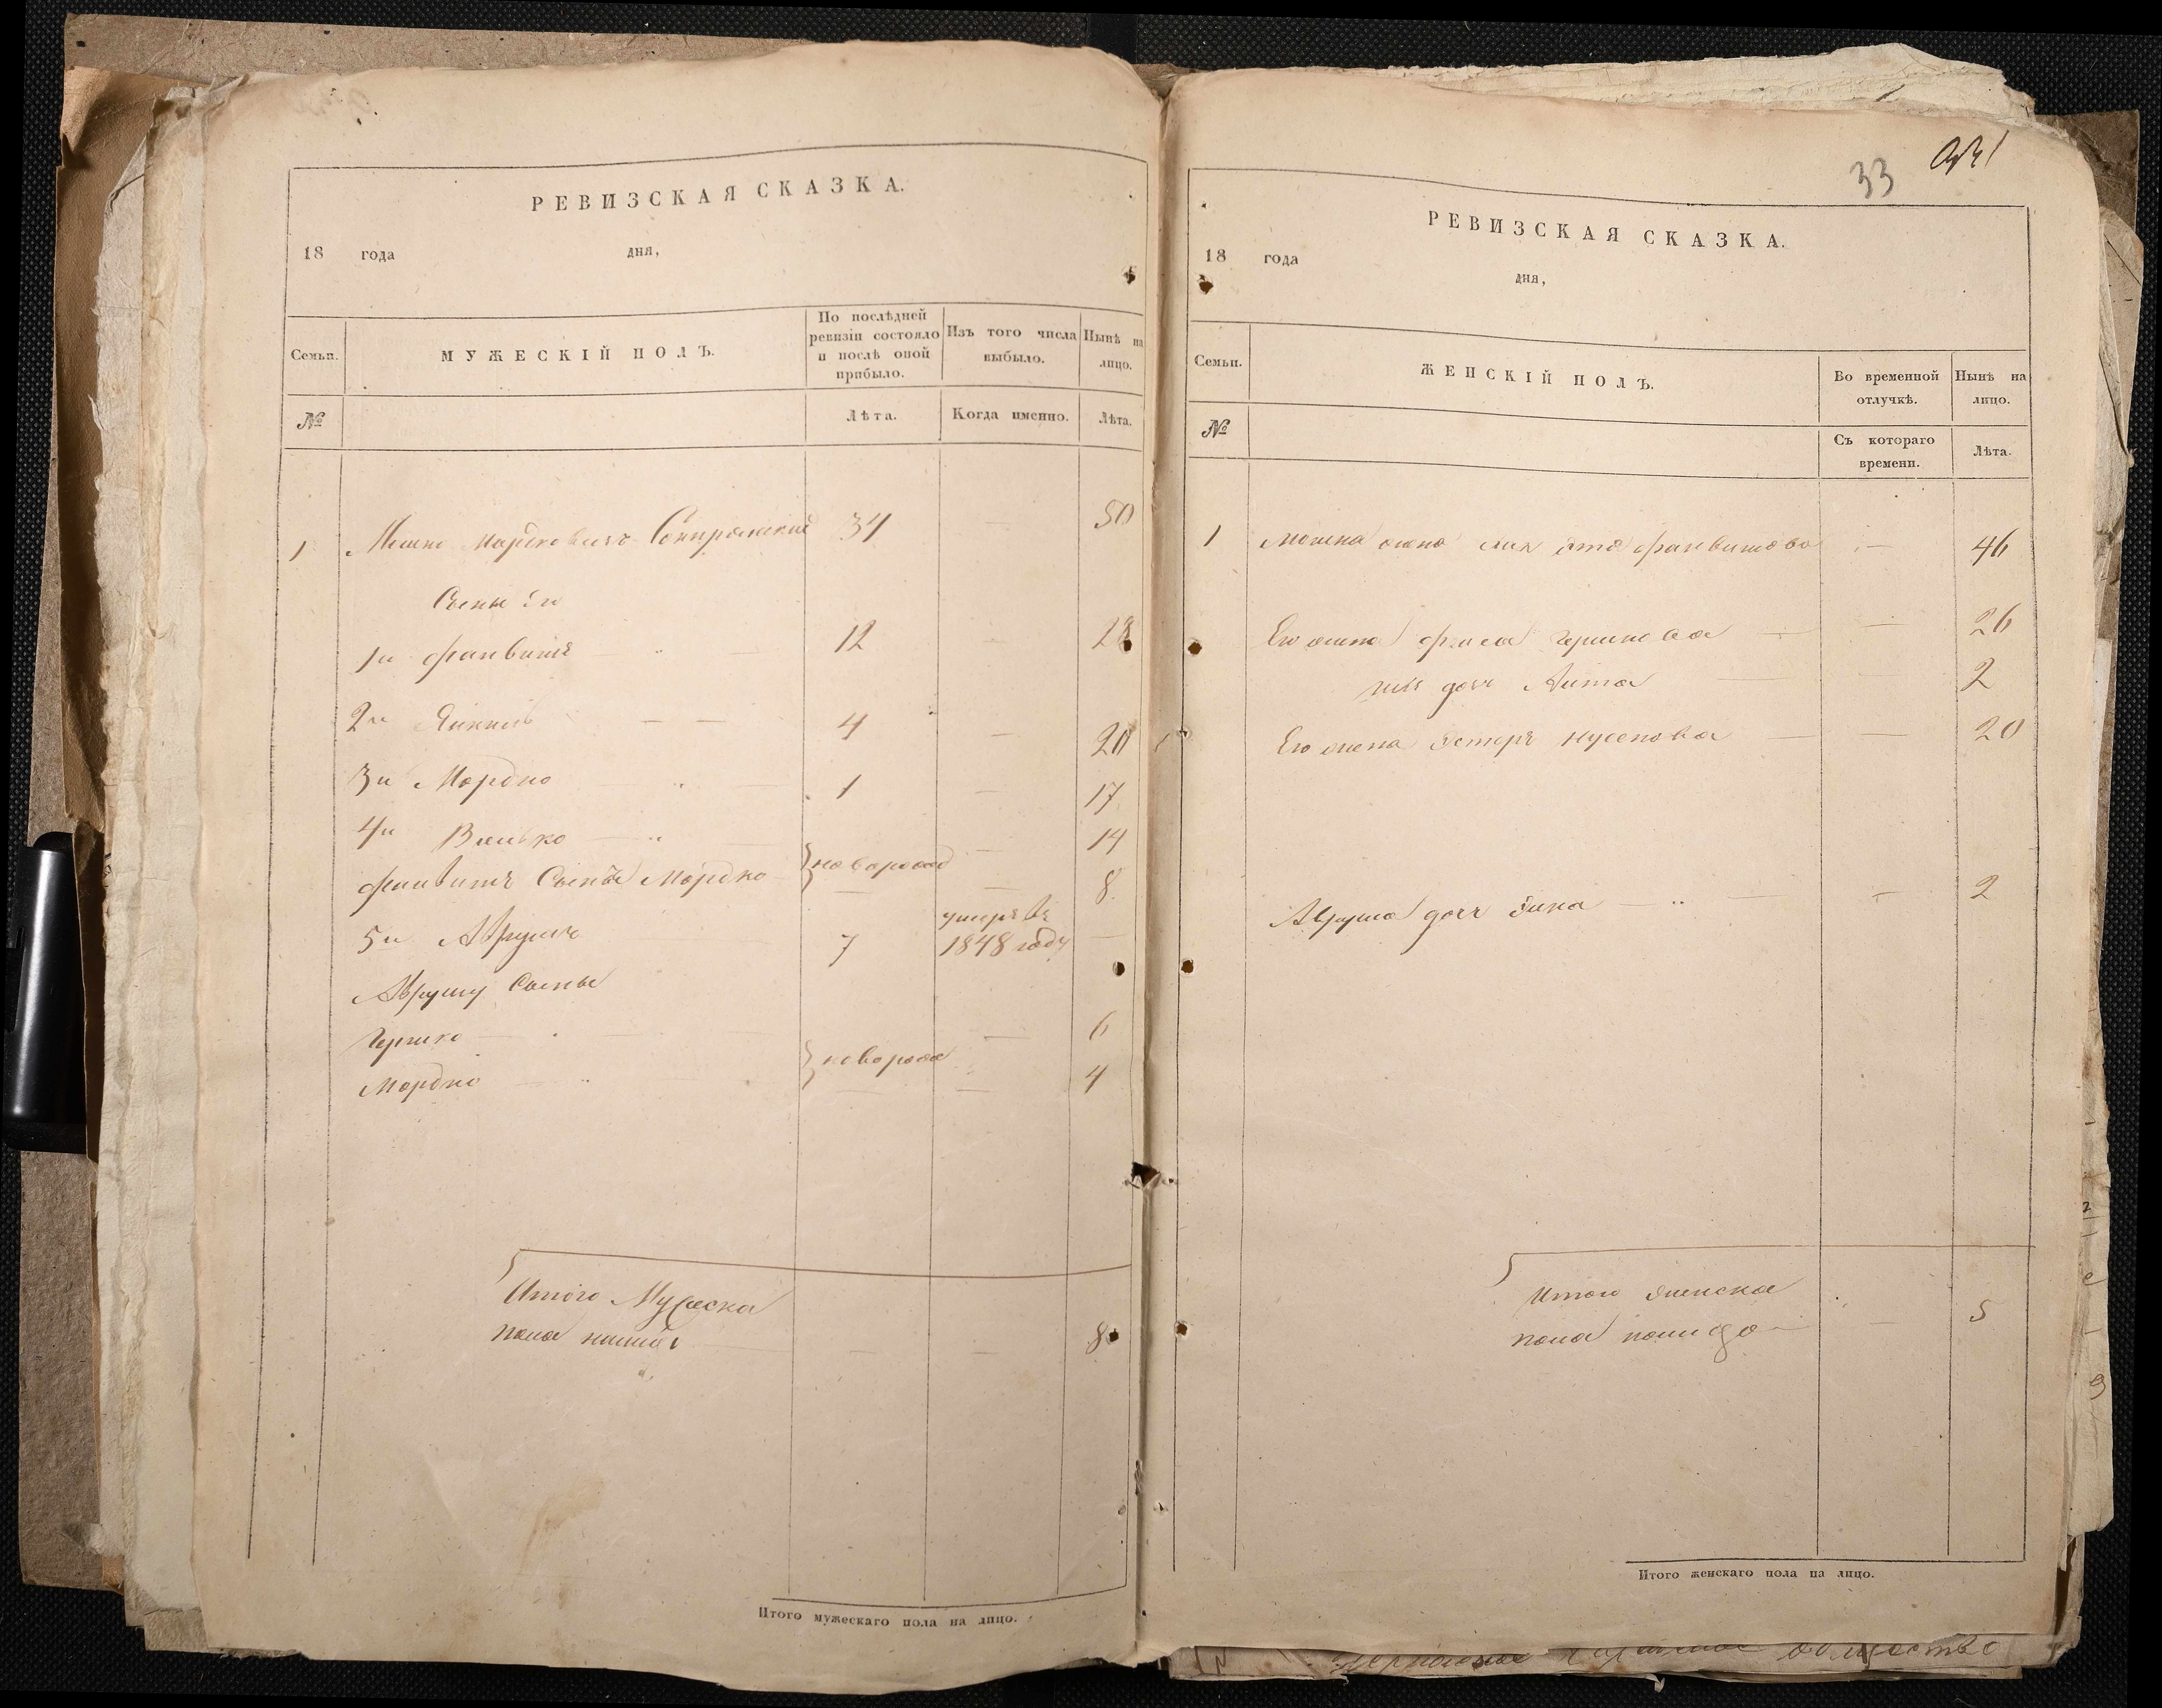 РЕВИЗСКАЯ СКАЗКА.
18 года дня,
Семьи. МУЖЕСКІЙ ПОЛЪ. По послѣдней ревизіи состояло и послѣ оной прибыло. Изъ того числа выбыло. Нынѣ на лицо.
№ Лѣта. Когда именно. Лѣта.
1 Мошко Мордковичъ 34 — 50
Сыны
1й Файвишъ 12 — 28
2й Янкель 4 — 20
3й Мордко 1 — 17
4й Волько — 14
Файвиша Сынъ Мордко новорожд — 8
5й Аврумъ 7 умеръ въ 1848 году —
Авруму Сыны
Гершко — 6
Мордко новорож — 4
Итого Мужеска
пола 8
Итого мужескаго пола на лицо.
33
РЕВИЗСКАЯ СКАЗКА.
18 года
дня,
Семьи. ЖЕНСКІЙ ПОЛЪ. Во временной отлучкѣ. Нынѣ на лицо.
№ Съ котораго времени. Лѣта.
1 Мошка жена Файвишова — 46
Его жена Гершкова — 26
дочь 2
Его жена Эстеръ Нусенова — 20
Аврума дочь — 2
Итого женска
пола — 5
Итого женскаго пола на лицо.
общество